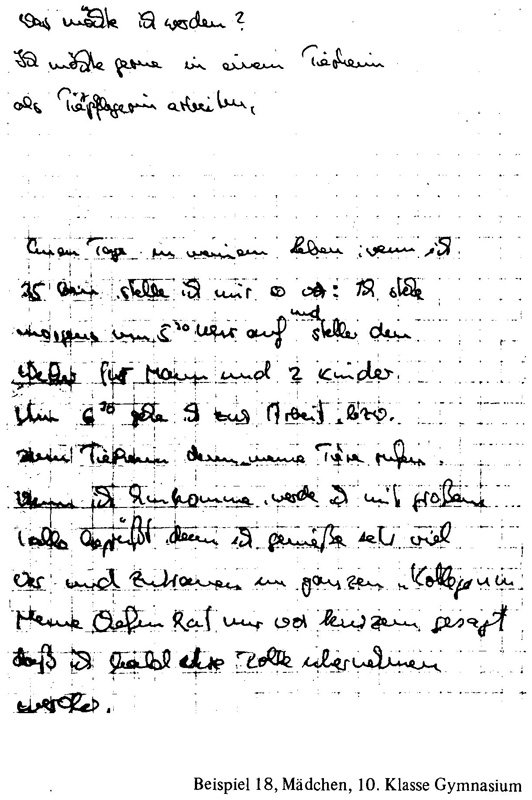 Was möchte ich werden?
Ich möchte gerne in einem Tierheim
als Tierpflegerin arbeiten.
Einen Tag in meinem Leben, wenn ich
35 bin stelle ich mir so vor: Ich stehe
morgens um 5 30 Uhr auf und stelle den
Wecker für Mann und 2 Kinder.
Um 6 30 gehe ich zur Arbeit, bzw.
zum Tierheim denn meine Tiere rufen.
Wenn ich hinkomme, werde ich mit großem
Hallo begrüßt denn ich genieße sehr viel
und Zutrauen im ganzen
Meine Chefin hat mir vor kurzem gesagt
daß ich bald ihre Rolle übernehmen
werde.
Beispiel 18, Mädchen, 10. Klasse Gymnasium